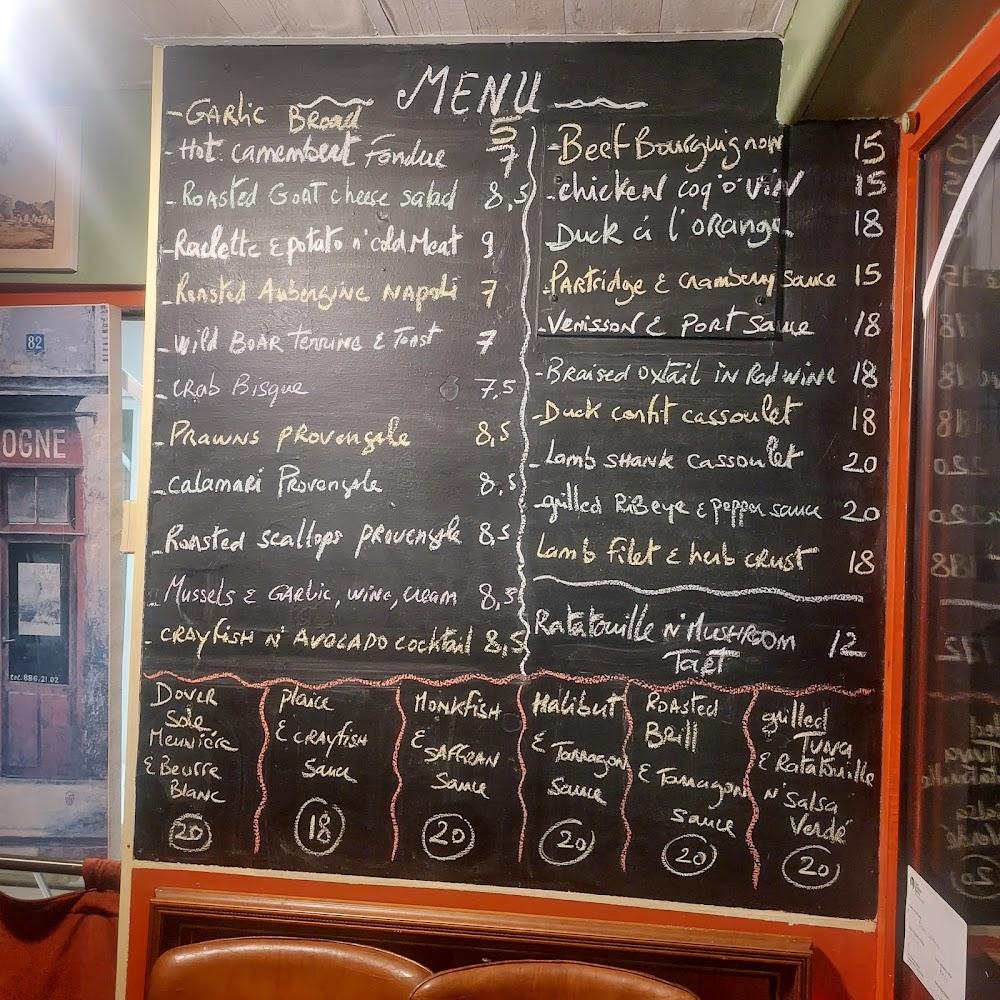 MENU
- GARLIC Bread 5
- Hot camembert Fondue 7
- Roasted Goat cheese salad 8,5
- Raclette & potato n' cold Meat 9
- Roasted Aubergine NAPoli 7
- Wild BOAR Terrine & Toast 7
- CRAB Bisque 7,5
- PRAWNS PROVENÇALE 8,5
- calamari Provençale 8,5
- Roasted scallops provençale 8,5
- Mussels & GARLIC, wine, cream 8,5
- CRAYFISH N' AVOCADO COCKTAIL 8,5
- Beef Bourguignon 15
- chicken coq o' vin 15
- Duck á l'ORANGE 18
- Partridge & Cramberry sauce 15
- Venisson & Port Sauce 18
- Braised oxtail in Red wine 18
- Duck confit cassoulet 18
- Lamb SHANK Cassoulet 20
- grilled Ribeye & pepper sauce 20
Lamb Filet & herb crust 18
Ratatouille N' MUSHROOM 12
TART
DOVER
Sole
Meunière
& Beurre
Blanc
20
Plaice
& CRAYFISH
Sauce
18
MONKFISH
& SAFFRAN
Sauce
20
Halibut
& Tarragon
Sauce
20
ROASTED
Brill
& Tarragon
sauce
20
grilled
TUNA
& Ratatouille
N' Salsa
Verdé
20
82
OGNE
tel. 886.21.02